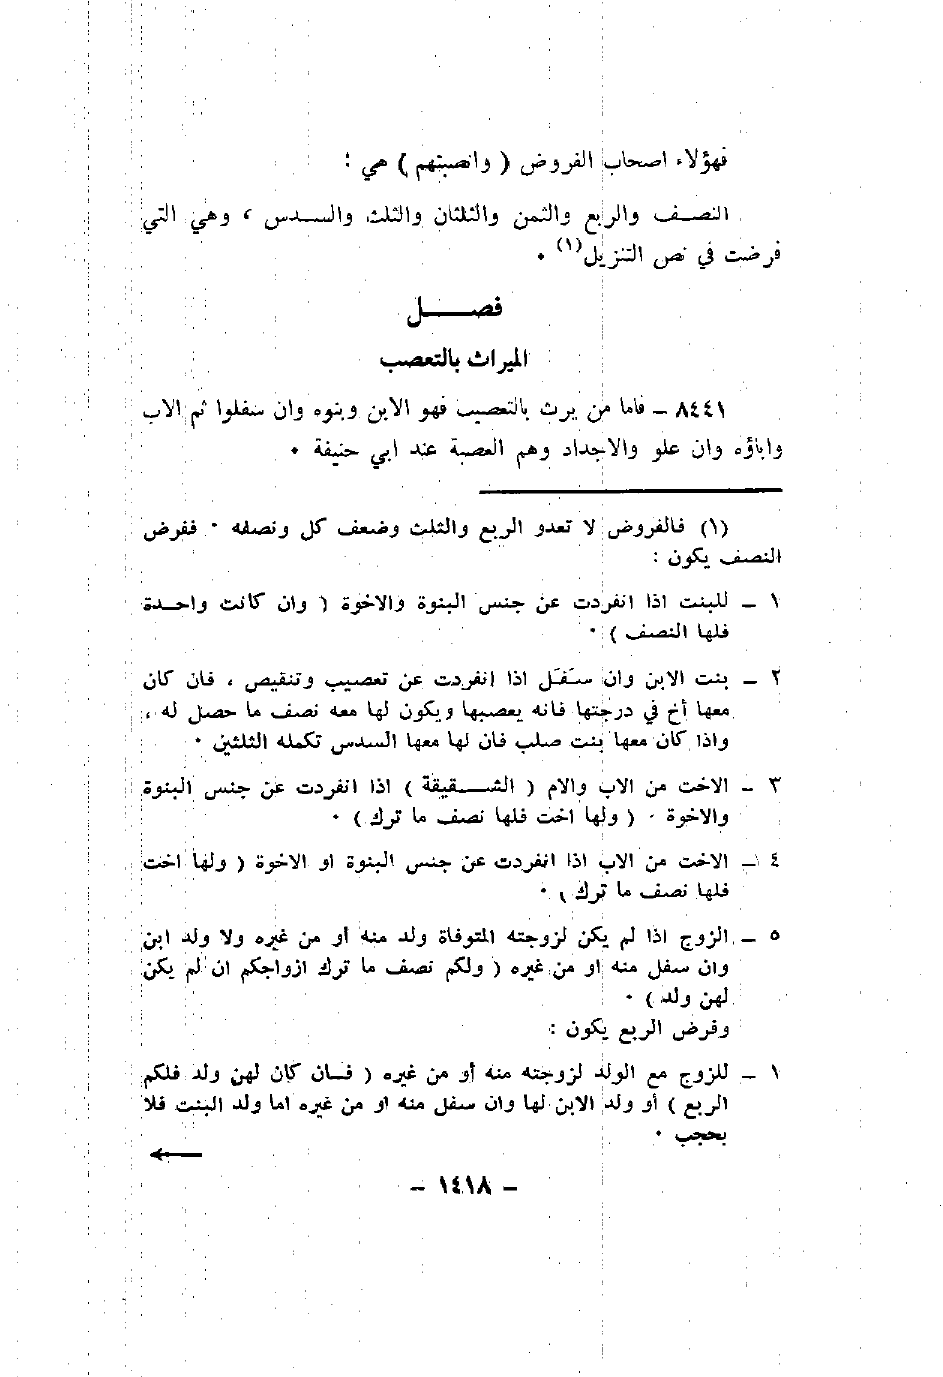 فهؤلاء اصحاب الفروض ( وانصبتهم ) هي :
النصــف والربع والثمن والثلثان والثلث والســدس ، وهي التي
فرضت في نص التنزيل(١) ٠
فصـــــل
الميراث بالتعصب
٨٤٤١ – فاما من يرث بالتعصيب فهو الابن وبنوه وان سفلوا ثم الاب
واباؤه وان علو والاجداد وهم العصبة عند ابي حنيفة ٠
(١) فالفروض لا تعدو الربع والثلث وضعف كل ونصفه ٠ ففرض
النصف يكون :
١ – للبنت اذا انفردت عن جنس البنوة والاخوة ( وان كانت واحــدة
فلها النصف ) ٠
٢ – بنت الابن وان سَفَل اذا انفردت عن تعصيب وتنقيص ، فان كان
معها أخ في درجتها فانه يعصبها ويكون لها معه نصف ما حصل له ،
واذا كان معها بنت صلب فان لها معها السدس تكمله الثلثين ٠
٣ – الاخت من الاب والام ( الشــقيقة ) اذا انفردت عن جنس البنوة
والاخوة ٠ ( ولها اخت فلها نصف ما ترك ) ٠
٤ – الاخت من الاب اذا انفردت عن جنس البنوة او الاخوة ( ولها اخت
فلها نصف ما ترك ) ٠
٥ – الزوج اذا لم يكن لزوجته المتوفاة ولد منه أو من غيره ولا ولد ابن
وان سفل منه او من غيره ( ولكم نصف ما ترك ازواجكم ان لم يكن
لهن ولد ) ٠
وفرض الربع يكون :
١ – للزوج مع الولد لزوجته منه أو من غيره ( فــان كان لهن ولد فلكم
الربع ) أو ولد الابن لها وان سفل منه او من غيره اما ولد البنت فلا
يحجب ٠
– ١٤١٨ –